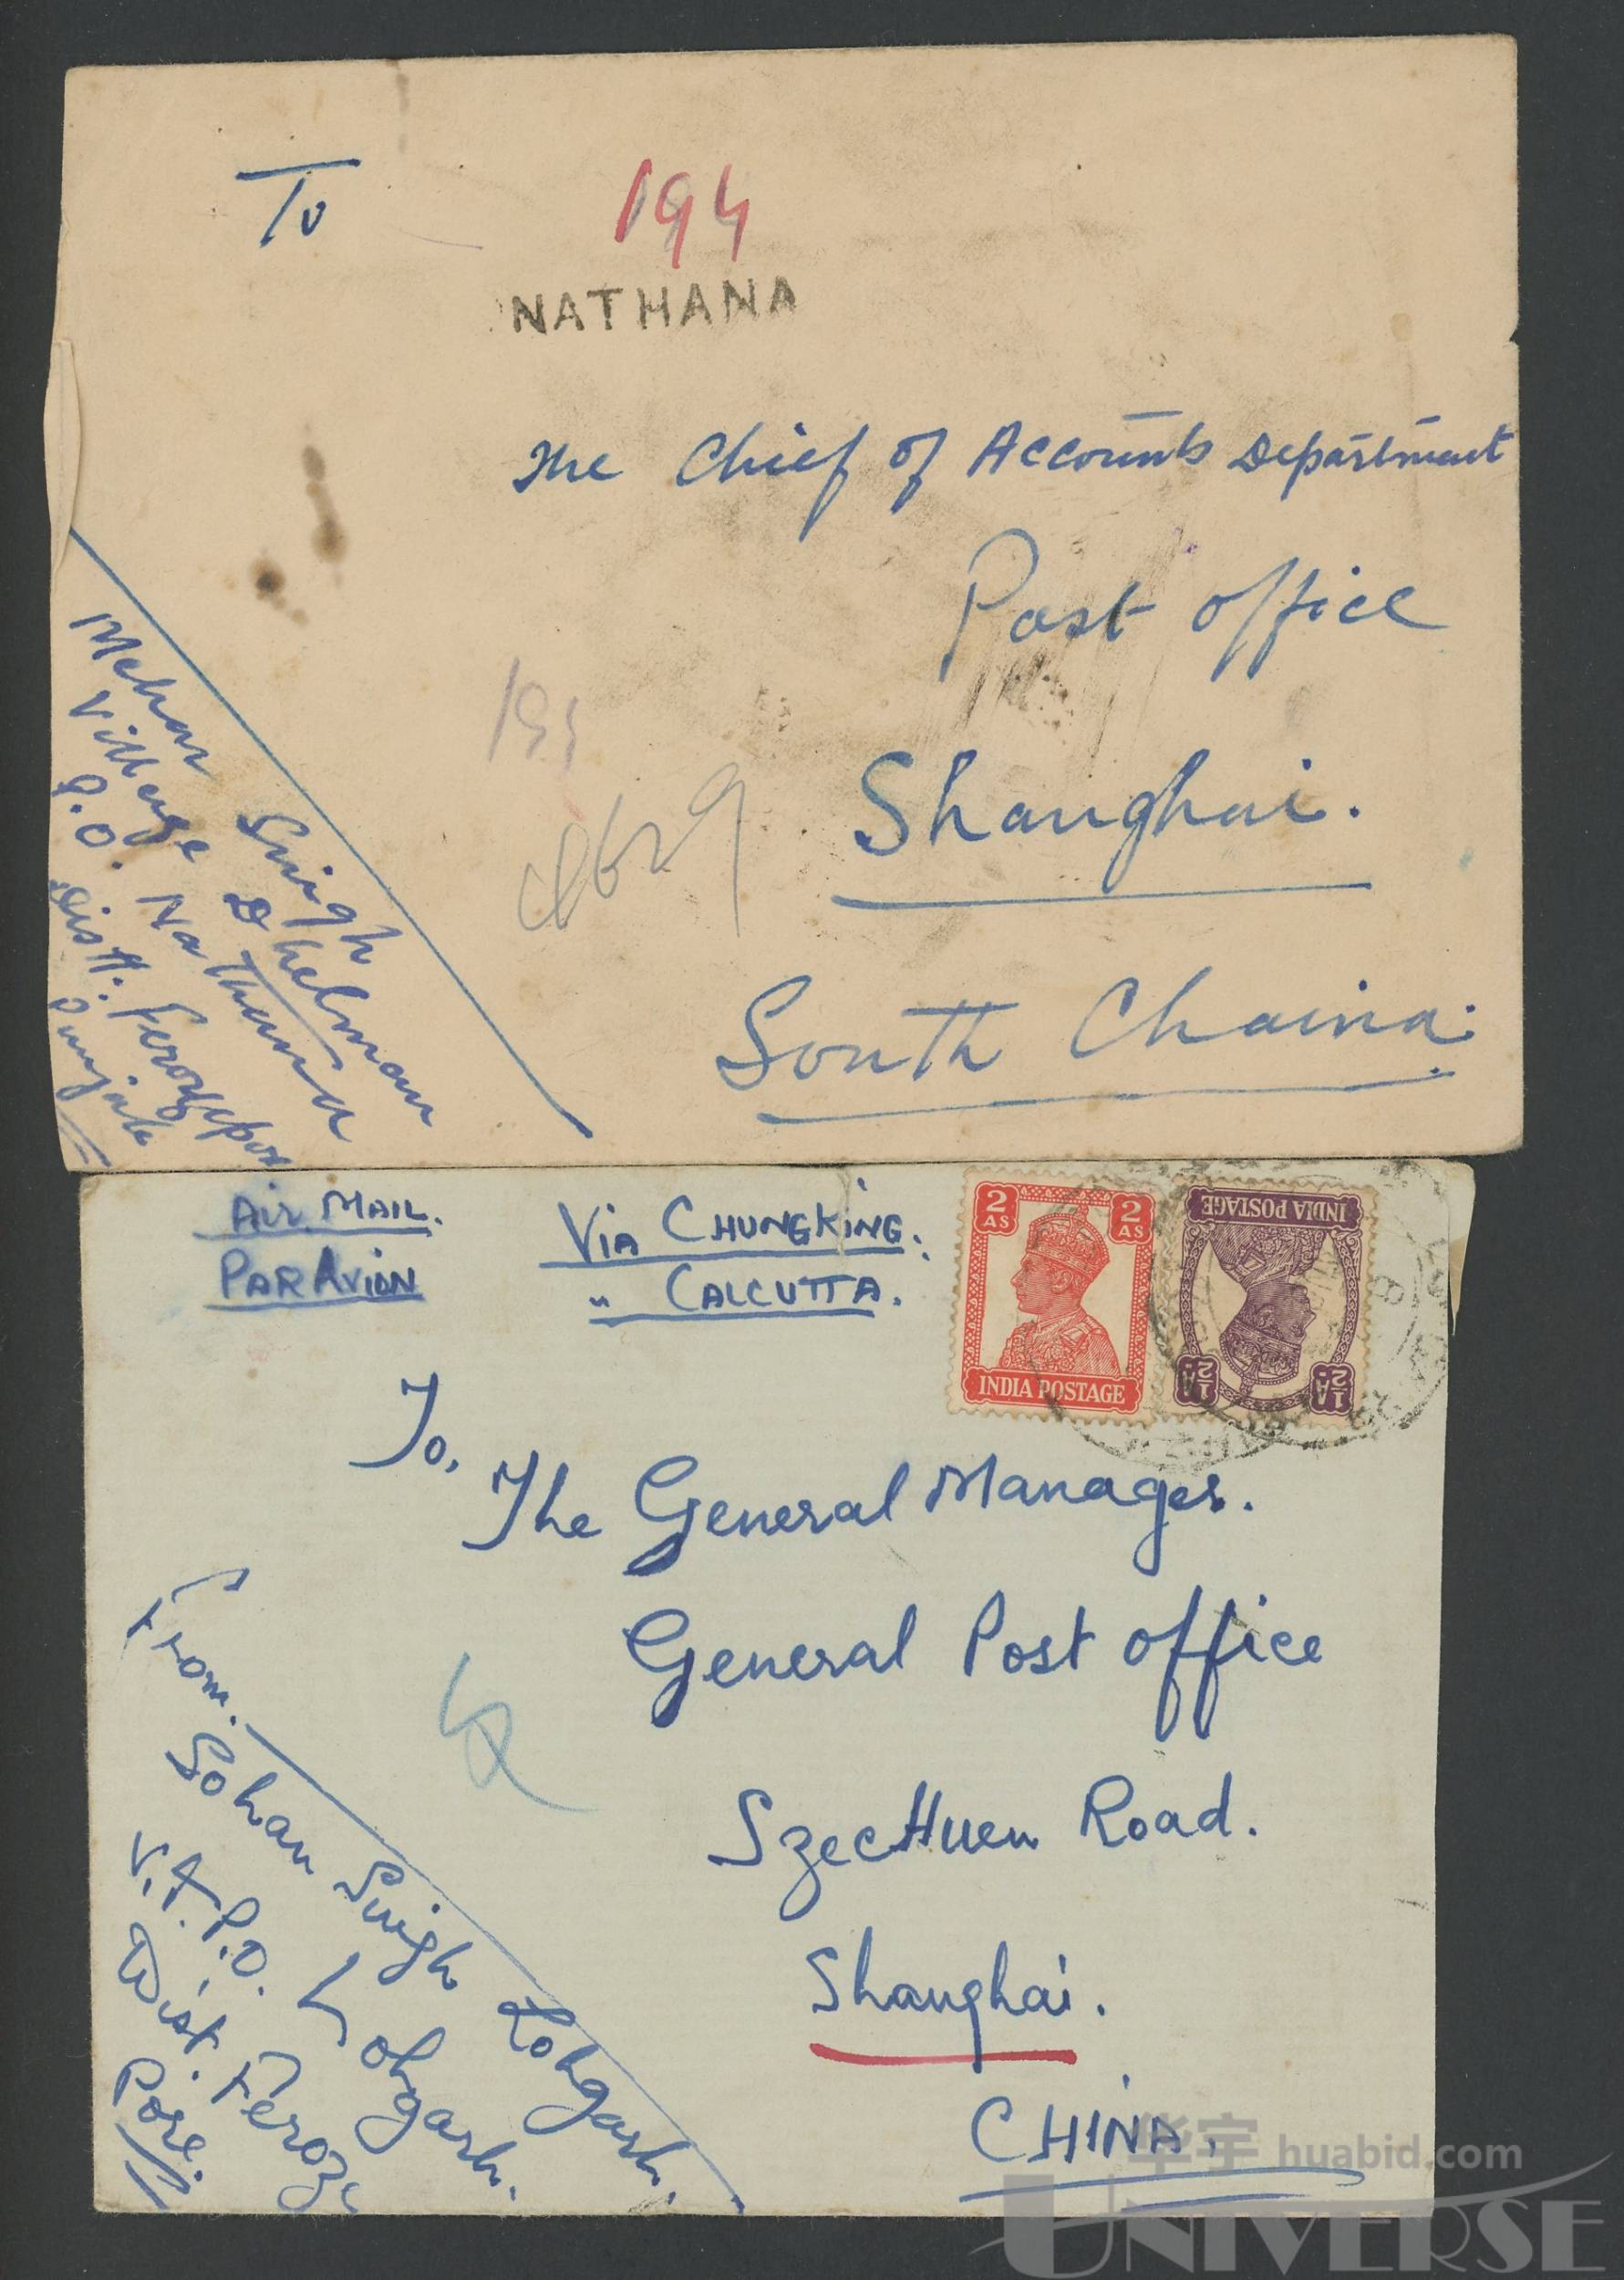 To
194
NATHANA
The Chief of Accounts Department
Post office
Shanghai.
South Chaina.
Mehar Singh
Village Dhelman
P.O. Nathana
Distt. Ferozepor
Punjab
AIR MAIL.
PAR AVION
VIA CHUNGKING.
" CALCUTTA.
2 AS 2 AS
INDIA POSTAGE
INDIA POSTAGE
1/2 A. 1/2 A.
To,
The General Manager.
General Post office
SzecHuen Road.
Shanghai.
CHINA.
From.
Sohan Singh Lohgarh.
V.&.P.O. Lohgarh.
Dist. Feroze
Pore.
华宇 huabid.com
UNIVERSE